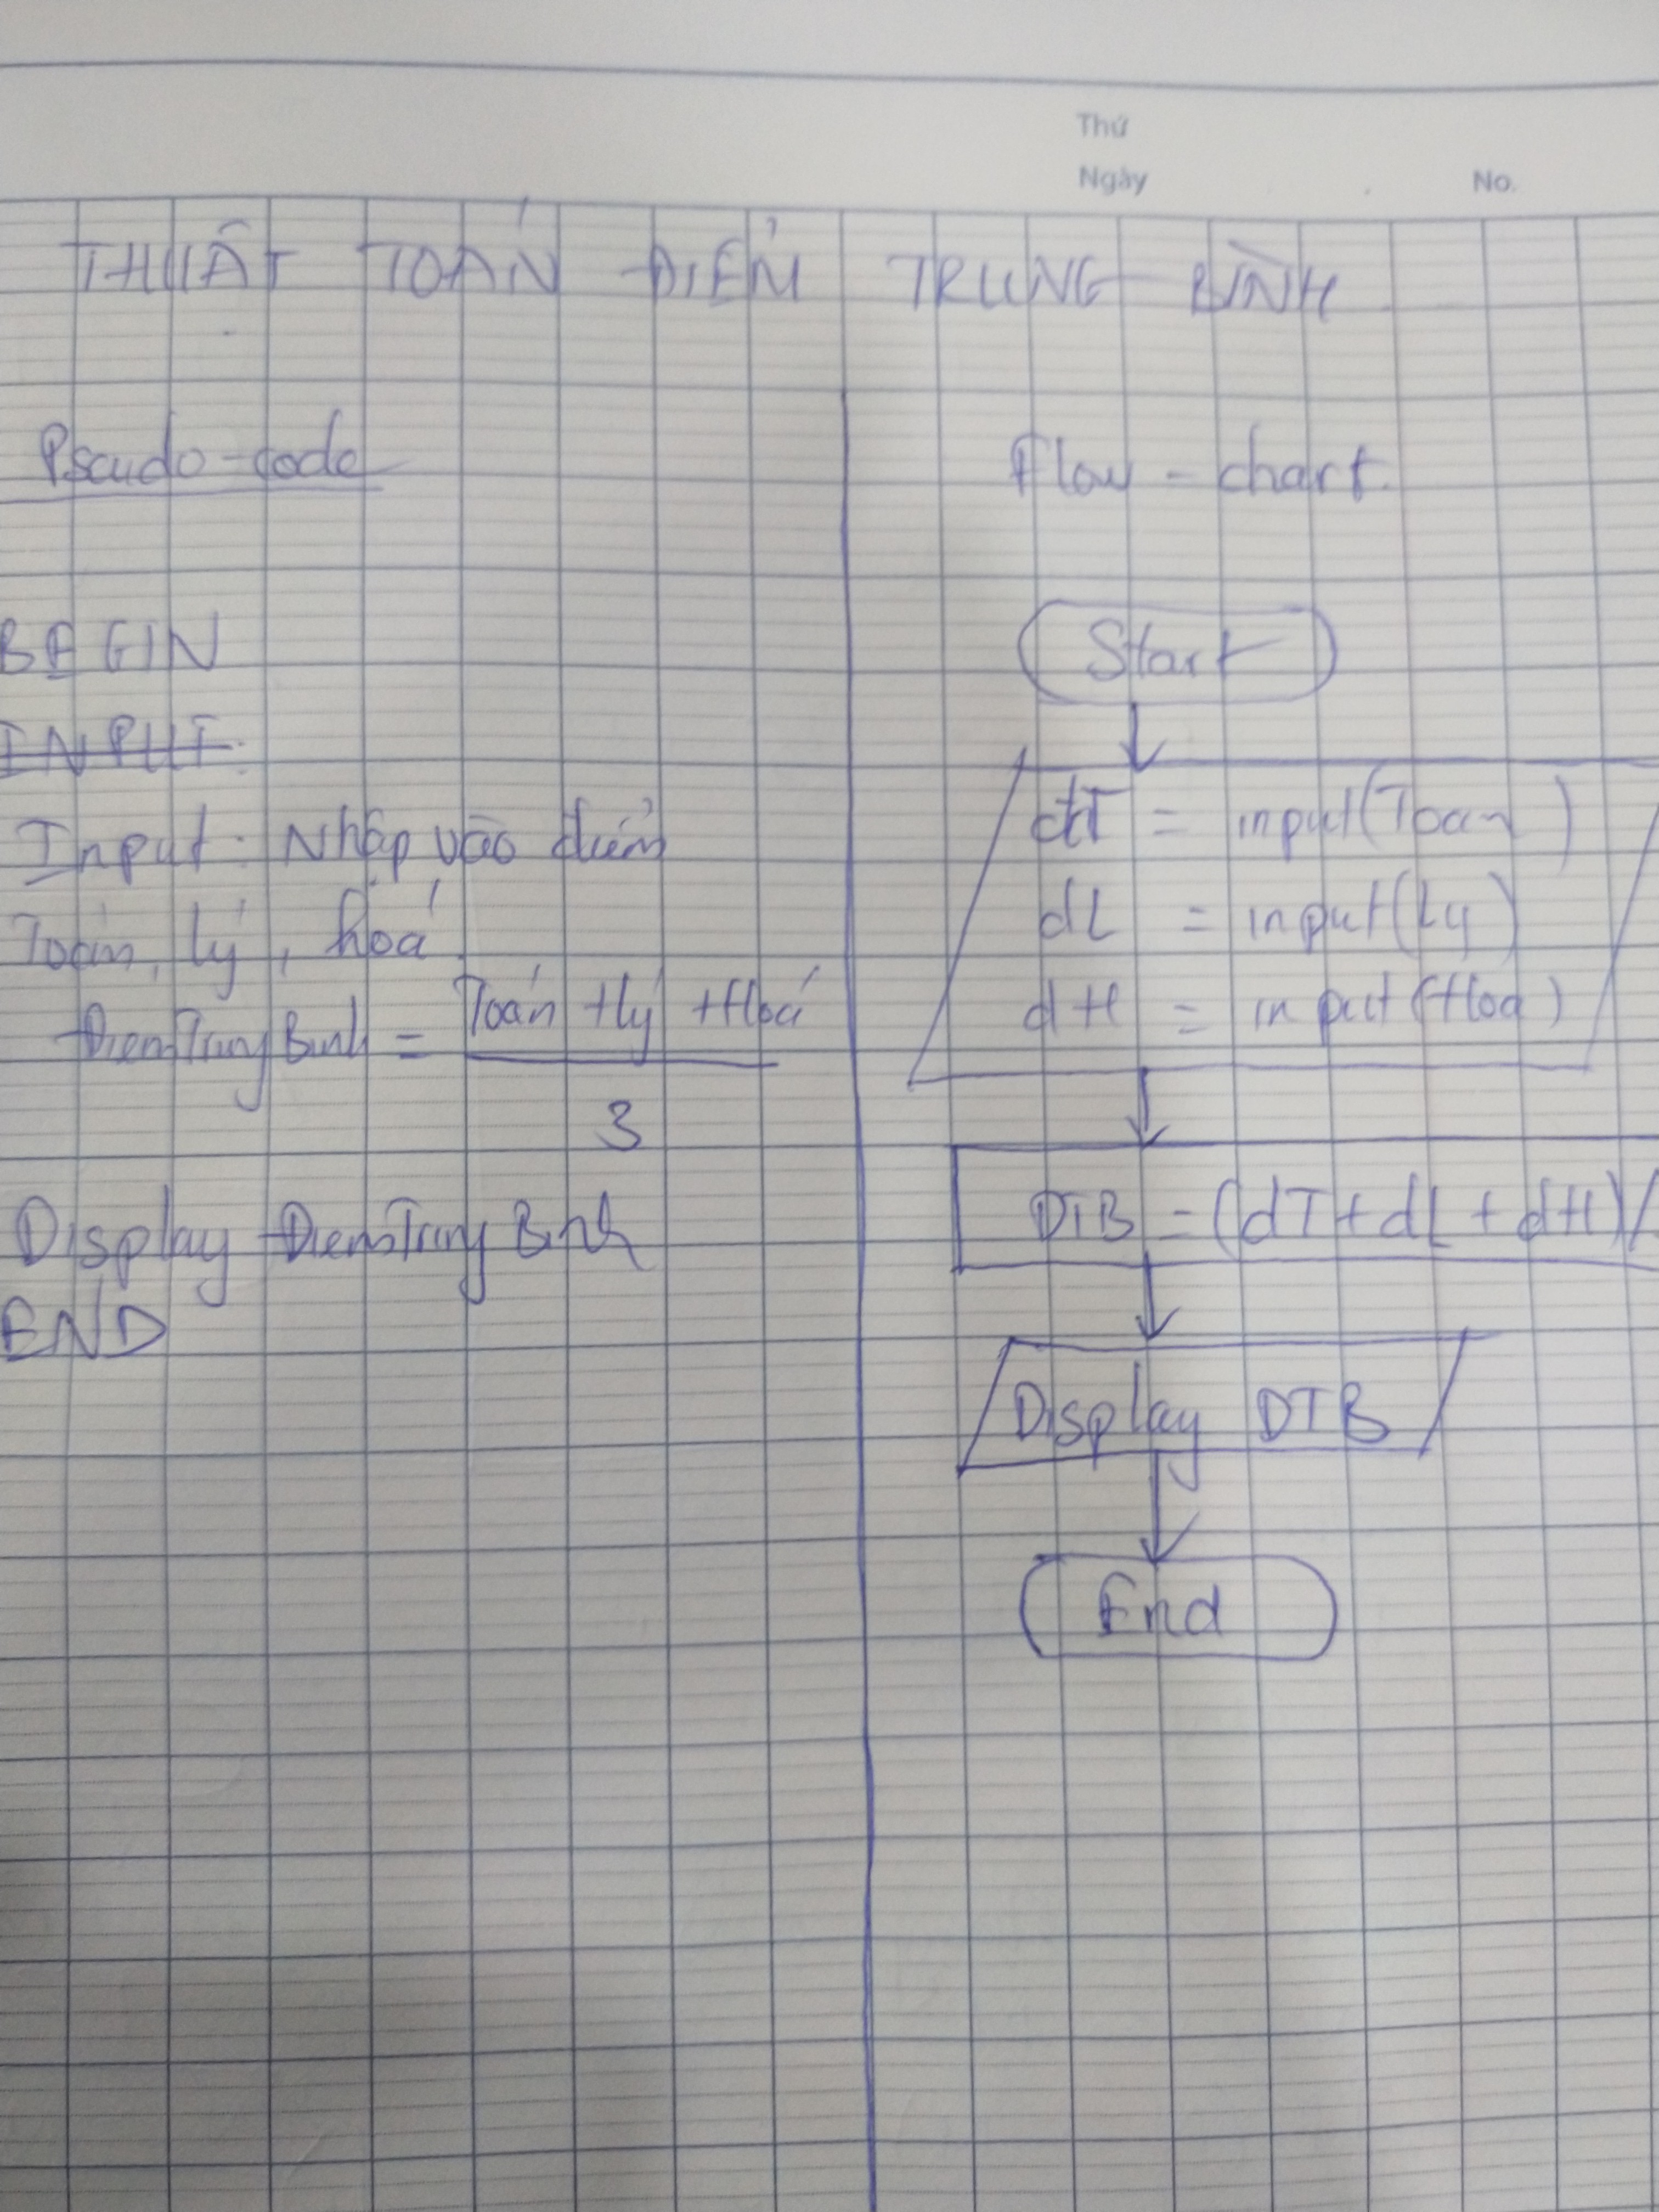 Thứ
Ngày
No.
THUẬT TOÁN ĐIỂM TRUNG BÌNH
Pseudo-code
BEGIN
INPUT:
Input: Nhập vào điểm
Toán, lý, hoá.
ĐiemTrungBinh = Toán + lý + Hoá
3
Display ĐiemTrungBinh
END
Flow - chart.
Start
dT = input(Toan)
dL = input(Ly)
dH = input(Hoa)
DTB = (dT+dL+dH)/
Display DTB
End